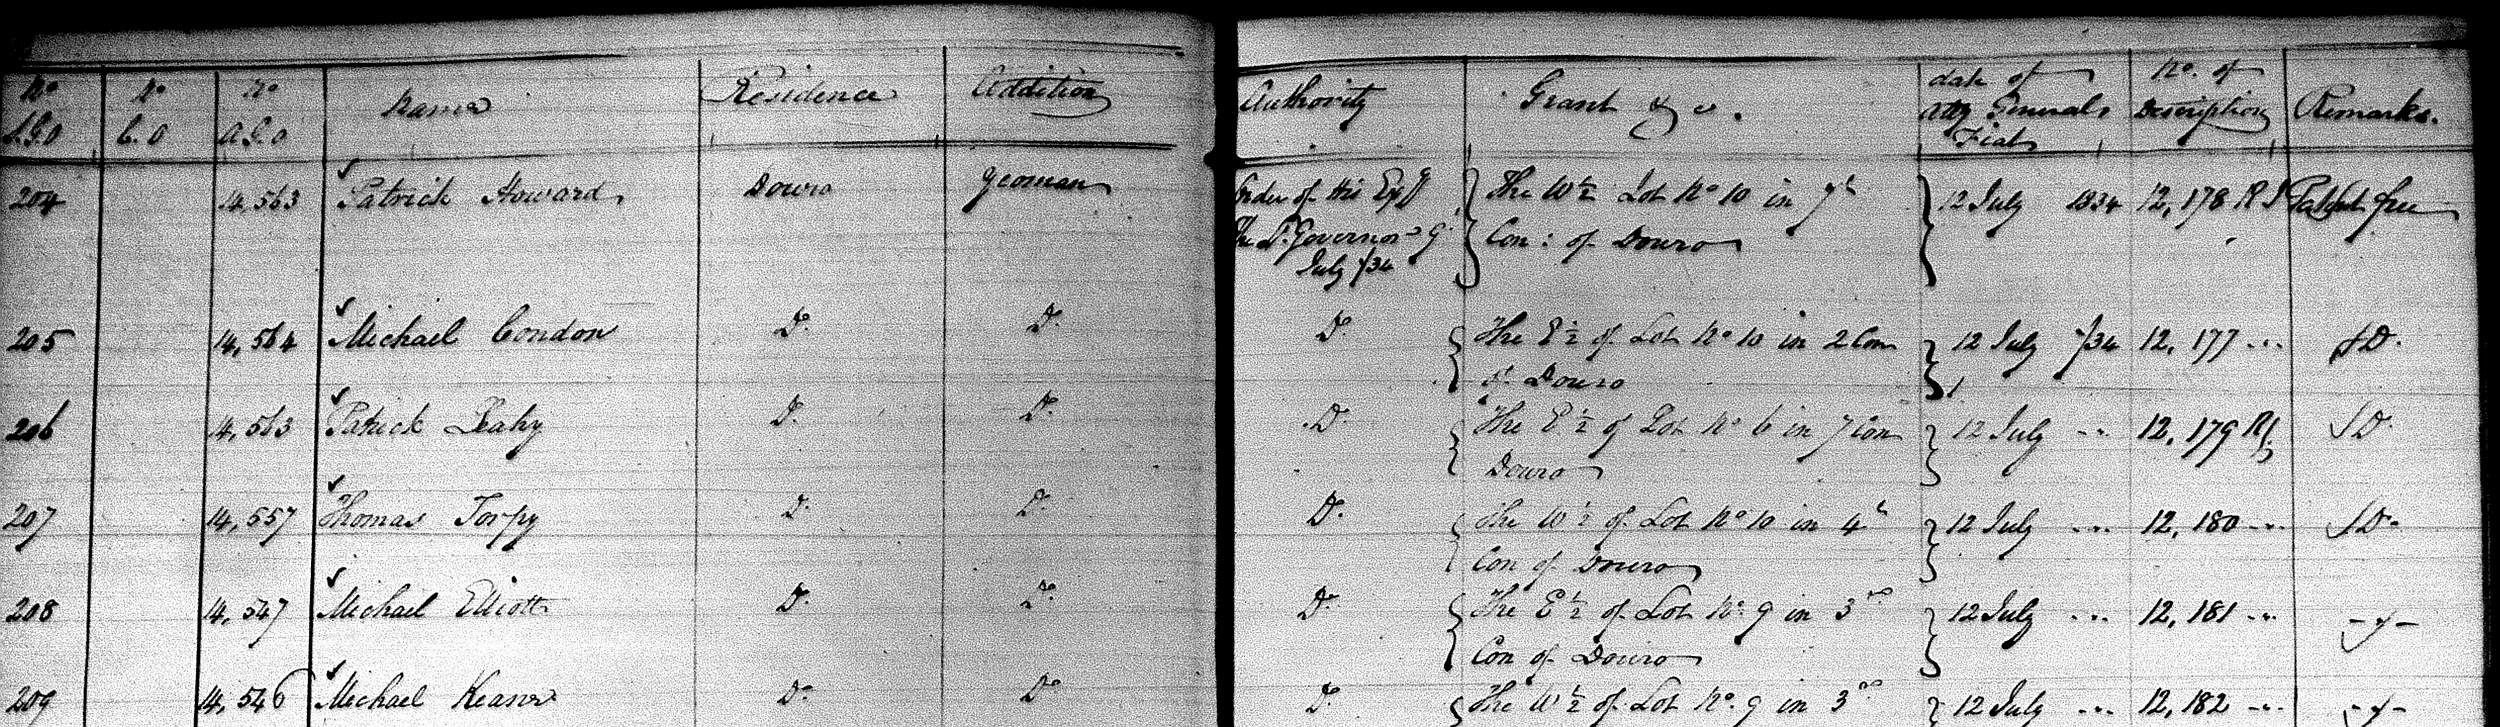 No No No Name Residence Addition Authority Grant &c. date of Atty Generals Fiat No. of Description Remarks.
S.G.O C.O A.G.O
204 14,563 Patrick Howard Douro Yeoman Order of His Exy The W½ Lot No 10 in 7th 12 July 1834 12,178 Patent free
The Lt. Governor 9 Con: of Douro
July /34
205 14,564 Michael Condon Do. Do. Do. The E½ of Lot No 10 in 2 Con 12 July /34 12,177 ... Do.
Douro
206 14,563 Patrick Leahy Do. Do. Do. The E½ of Lot No 6 in 7 Con 12 July ... 12,179 Do.
Douro
207 14,557 Thomas Torpy Do. Do. Do. The W½ of Lot No 10 in 4th 12 July ... 12,180 ... Do.
Con of Douro
208 14,547 Michael Elliott Do. Do. Do. The E½ of Lot No. 9 in 3rd 12 July ... 12,181 ...
Con of Douro
209 14,546 Michael Keane Do. Do. Do. The W½ of Lot No. 9 in 3rd 12 July ... 12,182 ...